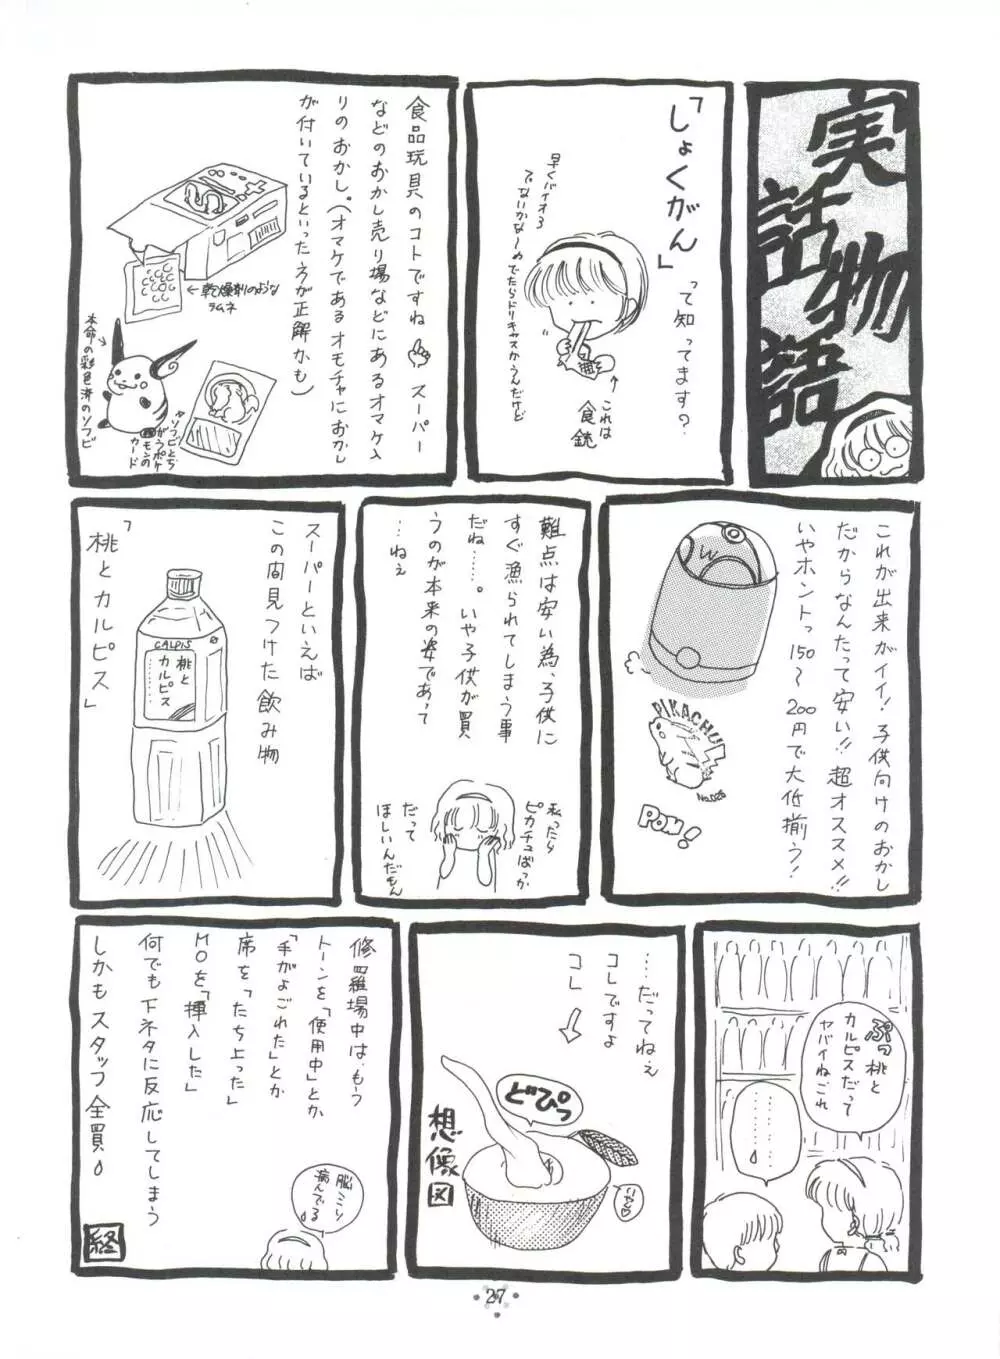 実話物語
「しょくがん」
って知ってます?
早くバイオ3
でないかなーめでたらドリキャスかうんだけど
これは
食銃
食品玩具のコトですね スーパー
などのおかし売り場などにあるオマケ入
りのおかし。(オマケであるオモチャにおかし
が付いているといった方が正解かも)
←乾燥剤のような
ラムネ
本命の彩色済のソフビ
ソフビとち
がうポケ
モンの
カード
これが出来がイイ!子供向けのおかし
だからなんたって安い!!超オススメ!!
いやホントっ150〜200円で大低揃う!
W
PIKACHU
No.025
POW!
難点は安い為、子供に
すぐ漁られてしまう事
だね……。いや子供が買
うのが本来の姿であって
…ねぇ
私ったら
ピカチュばっか
だって
ほしいんだもん
スーパーといえば
この間見つけた飲み物
CALPIS
桃と
カルピス
「桃とカルピス」
ぷっ桃と
カルピスだって
ヤバイねこれ
…………
……だってねぇ
コレですよ
コレ
どぴっ
想像図
修羅場中は、もう
トーンを「使用中」とか
「手がよごれた」とか
席を「たち上った」
MOを「挿入した」
何でも下ネタに反応してしまう
しかもスタッフ全員
脳ミソ
病んでる
終
27